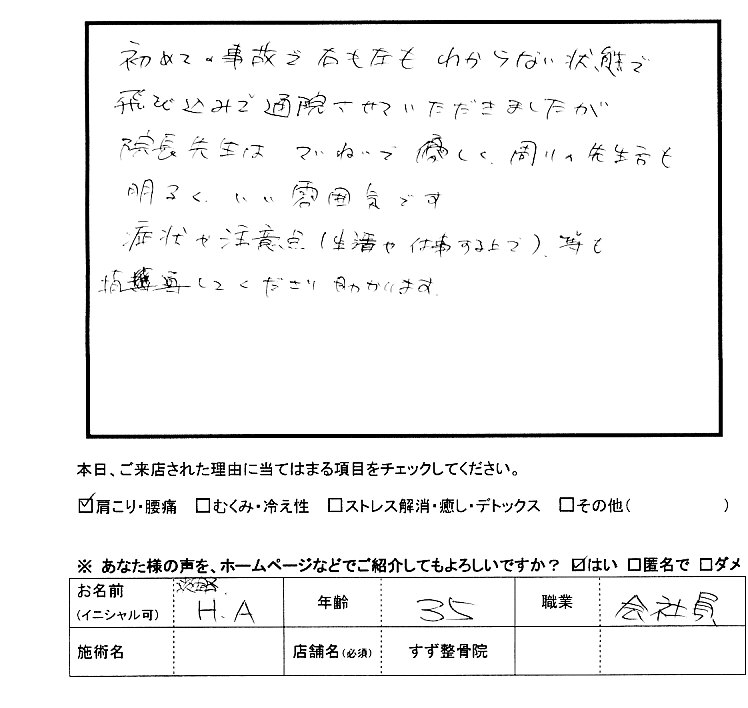 初めての事故で右も左もわからない状態で
飛び込みで通院させていただきましたが
院長先生は ていねいで優しく、周りの先生方も
明るく、いい雰囲気です
症状や注意点(生活や仕事する上で)、等も
指導してくださり助かります。
本日、ご来店された理由に当てはまる項目をチェックしてください。
☑肩こり・腰痛 □むくみ・冷え性 □ストレス解消・癒し・デトックス □その他( )
※ あなた様の声を、ホームページなどでご紹介してもよろしいですか? ☑はい □匿名で □ダメ
お名前 (イニシャル可) H.A 年齢 35 職業 会社員
施術名 店舗名(必須) すず整骨院